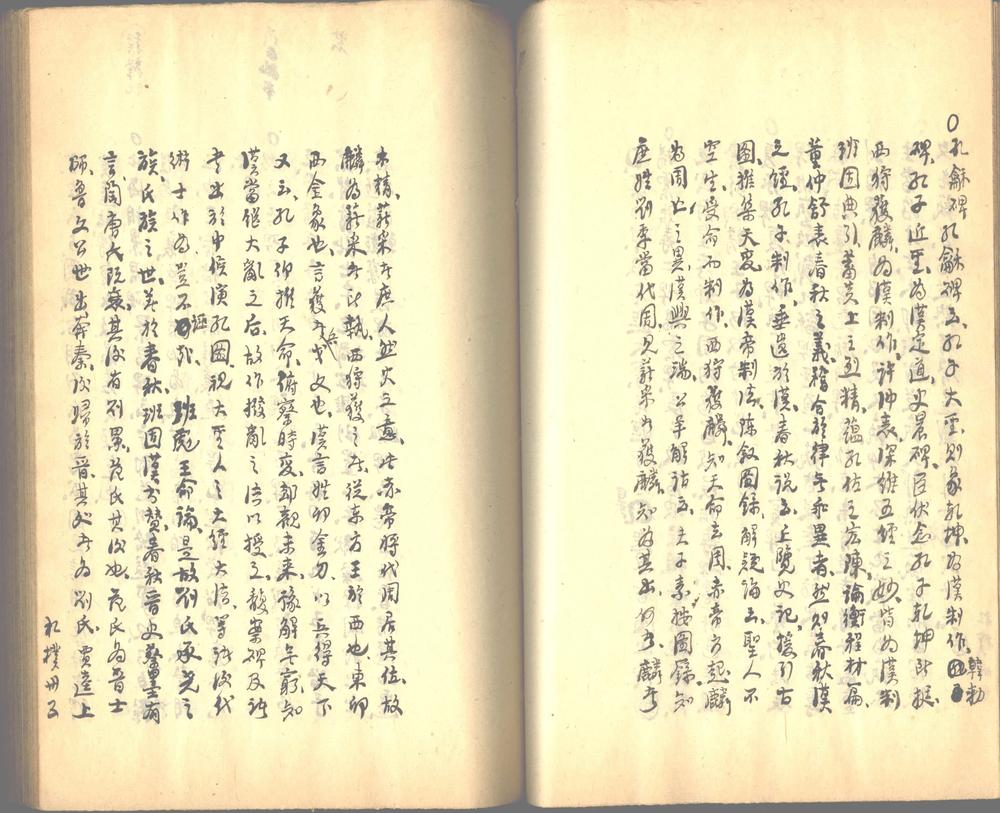 ○孔龢碑 孔龢碑云、孔子大聖、則象乾坤、為漢制作、韓勑
碑、孔子近聖、為漢定道、史晨碑、臣伏念孔子乾坤所挺、
西狩獲麟、為漢制作、許沖表、深維五經之妙、皆為漢制
班固典引、蓄炎上之烈精、蘊孔佐之宏陳、論衡程材篇、
董仲舒表春秋之義、稽合於律、無乖異者、然則春秋漢
之經、孔子制作、垂遺於漢、春秋說云、上覽史記、援引古
圖、推集天變、為漢帝制法、陳敘圖錄、解疑論云、聖人不
空生、受命而制作、西狩獲麟、知天命去周、赤帝方起、麟
為周亡之異、漢興之端、公羊解詁云、夫子素案圖錄、知
庶姓劉季當代周、見薪采者獲麟、知為其出、何者、麟者
木精、薪采者庶人燃火之意、此赤帝將代周居其位、故
麟為薪采者所執、西狩獲之者、從東方王於西也、東卯
西金象也、言獲者兵戈文也、漢言姓卯金刀、以兵得天下
又云、孔子仰推天命、俯察時變、卻觀未來、豫解無窮、知
漢當繼大亂之后、故作撥亂之法以授之、龢 碑及詁
者出於中候演孔圖、視大聖人之大經大法、等於後代
術士作為、豈不誣哉、 班彪王命論、是故劉氏承堯之
族、氏族之世、著於春秋、班固漢書贊、春秋晉史蔡墨有
言、陶唐氏既衰、其後有劉累、范氏其後也、范氏為晉士
師、魯文公世出奔秦、後歸於晉、其處者為劉氏、賈逵上
札樸冊五